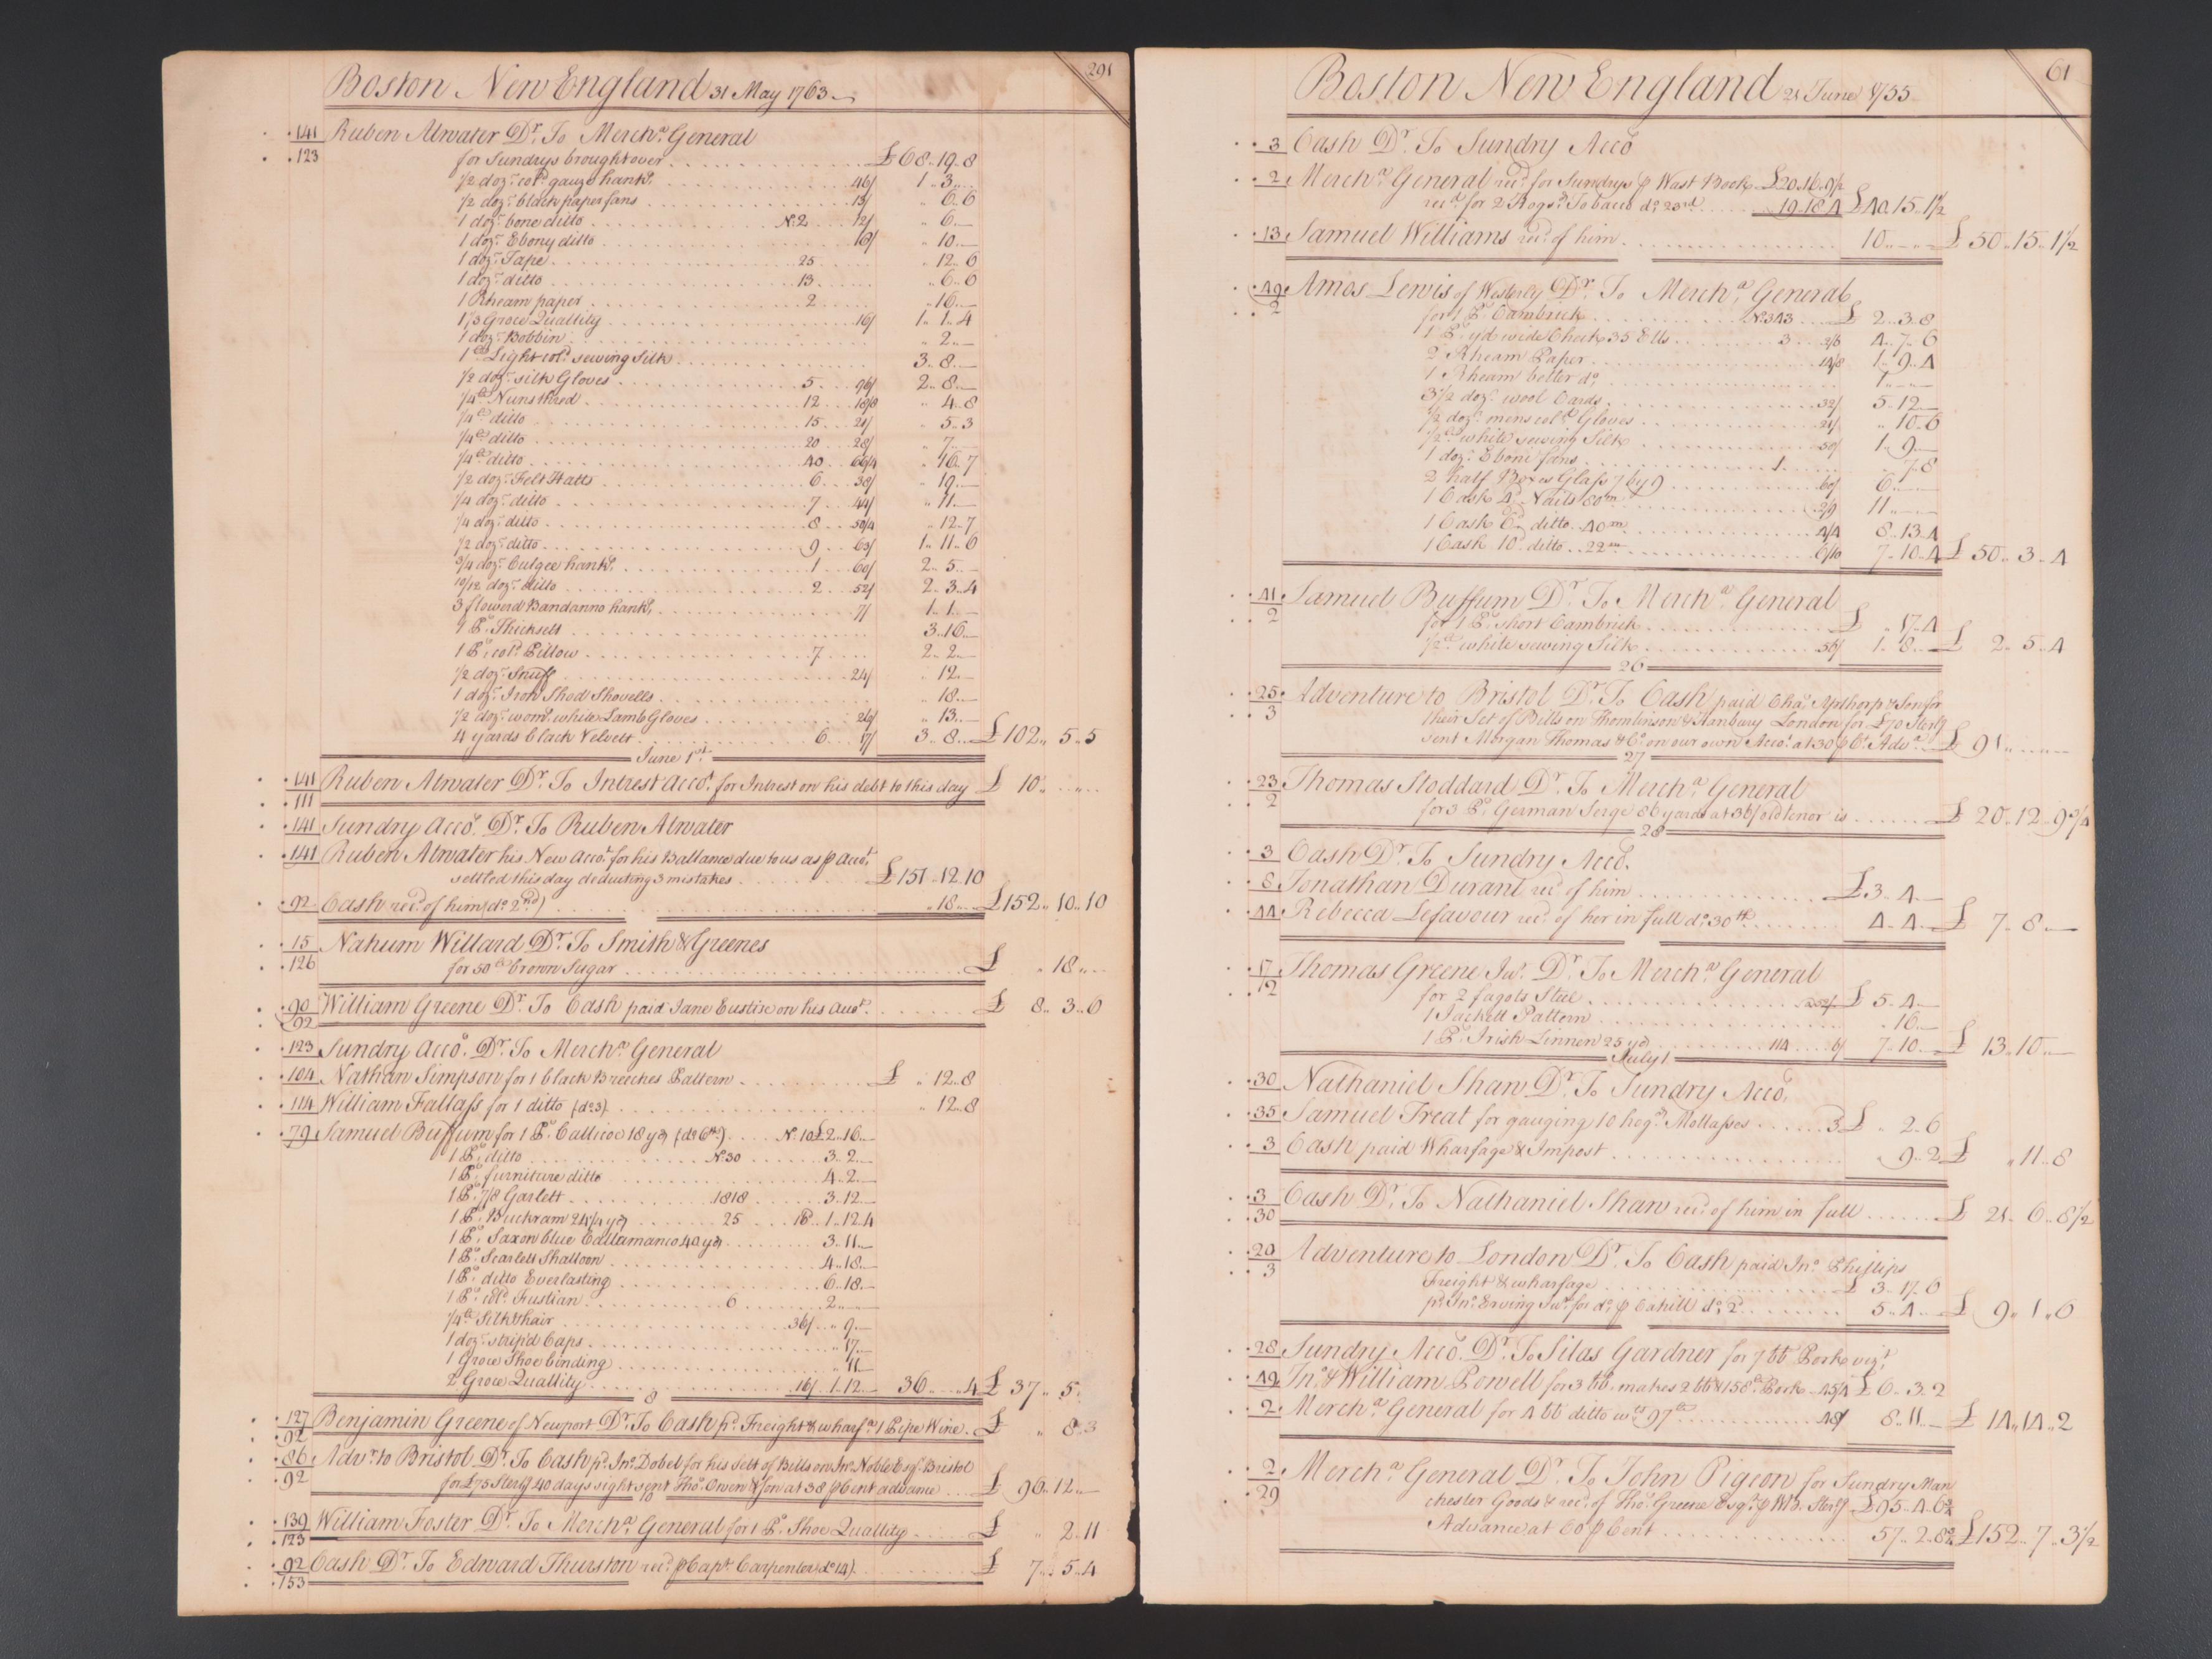 291
Boston New England 31 May 1763
141 Ruben Atwater Dr. To Mercha. General
123 for Sundrys brought over £68..19..8
1/2 dozn. cold. gauze hankfs. 46/ 1..3..
1/2 dozn. black paper fans 13/ ..6..6
1 dozn. bone ditto No. 2 12/ ..6..
1 dozn. Ebony ditto ..10..
1 dozn. Tape 25 ..12..6
1 dozn. ditto 13 ..6..6
1 Rheam paper 2 ..16..
1 1/3 Groce Quallity 16/ 1..1..4
1 dozn. Bobbin ..2..
1 lb Light cold. sewing Silk 3..8..
1/2 dozn. silk Gloves 5 96/ 2..8..
1/4 lb Nuns thred 12 18/8 ..4..8
1/4 lb ditto 15 21/ ..5..3
1/4 lb ditto 20 28/ ..7..
1/4 lb ditto 40 66/4 ..16..7
1/2 dozn. Felt Hatts 6 38/ ..19..
1/4 dozn. ditto 7 44/ ..11..
1/4 dozn. ditto 8 50/4 ..12..7
1/2 dozn. ditto 9 63/ 1..11..6
3/4 dozn. Culgee hankfs. 1 60/ 2..5..
10/12 dozn. ditto 2 52/ 2..3..4
3 flowerd Bandanno hankfs. 7/ 1..1..
1 Ps. Thicksett 3..16..
1 Ps. cold. Pillow 7 2..2..
1/2 dozn. Snuff 24/ ..12..
1 dozn. Iron Shod Shovells ..18..
1/2 dozn. woms. white Lamb Gloves 26/ ..13..
4 yards black Velvett 6 17/ 3..8.. £102..5..5
June 1st.
141 Ruben Atwater Dr. To Intrest Accot. for Intrest on his debt to this day £ 10..
111
141 Sundry Acco. Dr. To Ruben Atwater
141 Ruben Atwater his New Accot. for his Ballance due to us as p Accot.
settled this day deducting 3 mistakes £151..12..10
92 Cash recd. of him (do. 2nd) ..18.. £152..10..10
15 Nahum Willard Dr. To Smith & Greenes
126 for 50 lb brown Sugar £ ..18..
90 William Greene Dr. To Cash paid Jane Eustise on his Accot. £ 8..3..6
92
123 Sundry Acco. Dr. To Mercha. General
104 Nathan Simpson for 1 black Breeches Pattern £ ..12..8
114 William Fallass for 1 ditto (do. 3) ..12..8
79 Samuel Buffum for 1 Ps. Callicoe 18 yd (do. 6th.) No. 10 £2..16..
1 Ps. ditto No. 30 3..2..
1 Ps. furniture ditto 4..2..
1 Ps. 7/8 Garlett 1818 3..12..
1 Ps. Buckram 24 1/4 yd 25 1..12..4
1 Ps. Saxon blue Callamanco 40 yd 3..11..
1 Ps. Scarlett Shalloon 4..18..
1 Ps. ditto Everlasting 6..18..
1 Ps. cold. Fustian 6 2..
1/4 lb Silk & hair 36/ ..9..
1 dozn. strip'd Caps ..17..
1 Groce Shoe binding ..11..
2 Groce Quallity 16/ 1..12.. 36....4 £ 37..5..
8
127 Benjamin Greene of Newport Dr. To Cash pd. Freight & wharfa. 1 Pipe Wine £ ..8..3
92
86 Advr. to Bristol Dr. To Cash pd. Jno. Dobel for his Sett of Bills on Jno. Noble Esqr. Bristol
92 for £75 Sterlg 40 days sight sent Thos. Owen & Son at 38 p Cent advance £ 96..12..
10
139 William Foster Dr. To Mercha. General for 1 Ps. Shoe Quallity £ ..2..11
123
92 Cash Dr. To Edward Thurston recd. p Capt. Carpenter (do. 14) £ 7..5..4
153
61
Boston New England 21 June 1755
3 Cash Dr. To Sundry Acco.
2 Mercha. General recd. for Sundrys p Wast Book £20..16..9 1/2
recd. for 2 Hogsd. Tobacco do. 23rd 19..18..4 £40..15..1 1/2
13 Samuel Williams recd. of him 10.... £ 50..15..1 1/2
49 Amos Lewis of Westerly Dr. To Mercha. General
2 for 1 Ps. Cambrick No. 343 £ 2..3..8
1 Ps. yd wide Check 35 Ells 3 2/6 4..7..6
2 Rheam Paper 14/8 1..9..4
1 Rheam better do. 1....
3 1/2 dozn. wool Cards 32/ 5..12..
1/2 dozn. mens cold. Gloves 21/ ..10..6
1/2 lb white sewing Silk 1..9..
1 dozn. Ebone fans 1 ..7..8
2 half Boxes Glass 7 by 9 60/ 6....
1 Cask 4d. Nails 80m 2/9 11....
1 Cask 6d. ditto 40m 4/4 8..13..4
1 Cask 10d. ditto 22m 6/10 7..10..4 £ 50..3..4
41 Samuel Buffum Dr. To Mercha. General
2 for 1 Ps. short Cambrick £ ..17..4
1/2 lb white sewing Silk 56/ 1..8.. £ 2..5..4
26
25 Adventure to Bristol Dr. To Cash paid Chas. Apthorp & Son for
3 their Set of Bills on Thomlinson & Hanbury London for £70 Sterlg
sent Morgan Thomas & Co. on our own Accot. at 30 p Ct. Adva. £ 91....
27
23 Thomas Stoddard Dr. To Mercha. General
2 for 3 Ps. German Serge 86 yards at 36/ old tenor is £ 20..12..9 3/4
28
3 Cash Dr. To Sundry Acco.
8 Jonathan Durant recd. of him £3..4..
44 Rebecca Lefavour recd. of her in full do. 30th 4..4.. £ 7..8..
17 Thomas Greene Junr. Dr. To Mercha. General
12 for 2 fagots Steel 52/ £ 5..4..
1 Jackett Pattern ..16..
1 Ps. Irish Linnen 25 yd 114 6/ 7..10.. £ 13..10..
July 1
30 Nathaniel Shaw Dr. To Sundry Acco.
35 Samuel Treat for gauging 10 hogd. Mollasses 3 £ ..2..6
3 Cash paid Wharfage & Impost ..9..2 £ ..11..8
3 Cash Dr. To Nathaniel Shaw recd. of him in full £ 21..6..8 1/2
30
20 Adventure to London Dr. To Cash paid Jno. Phillips
3 Freight & wharfage £ 3..17..6
pd. Jno. Erving Junr. for do. p Cahill do. 2 5..4.. £ 9..1..6
28 Sundry Acco. Dr. To Silas Gardner for 7 bb Pork vizt.
49 Jno. & William Powell for 3 bb. makes 2 bb & 158 lb Pork 45/4 £ 6..3..2
2 Mercha. General for 4 bb ditto wt. 97 lb 48/ 8..11.. £ 14..14..2
2 Mercha. General Dr. To John Pigeon for Sundry Man
29 chester Goods & recd. of Thos. Greene Esqr. Sterlg £95..4..6
Advance at 60 p Cent 57..2..8 £152..7..3 1/2